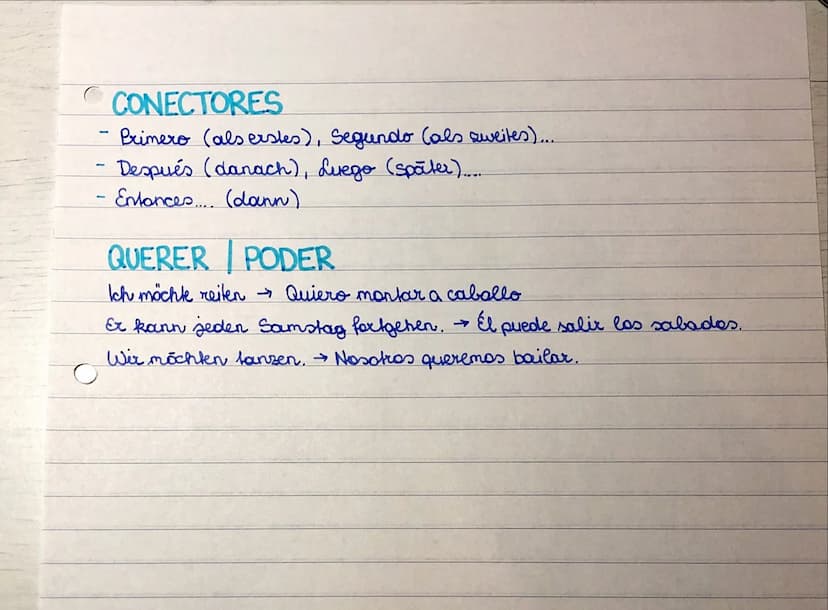 CONECTORES
- Primero (als erstes), Segundo (als zweites)...
- Después (danach), Luego (später)....
- Entonces.... (dann)
QUERER | PODER
Ich möchte reiten → Quiero montar a caballo
Er kann jeden Samstag fortgehen. → Él puede salir los sabados.
Wir möchten tanzen. → Nosotros queremos bailar.